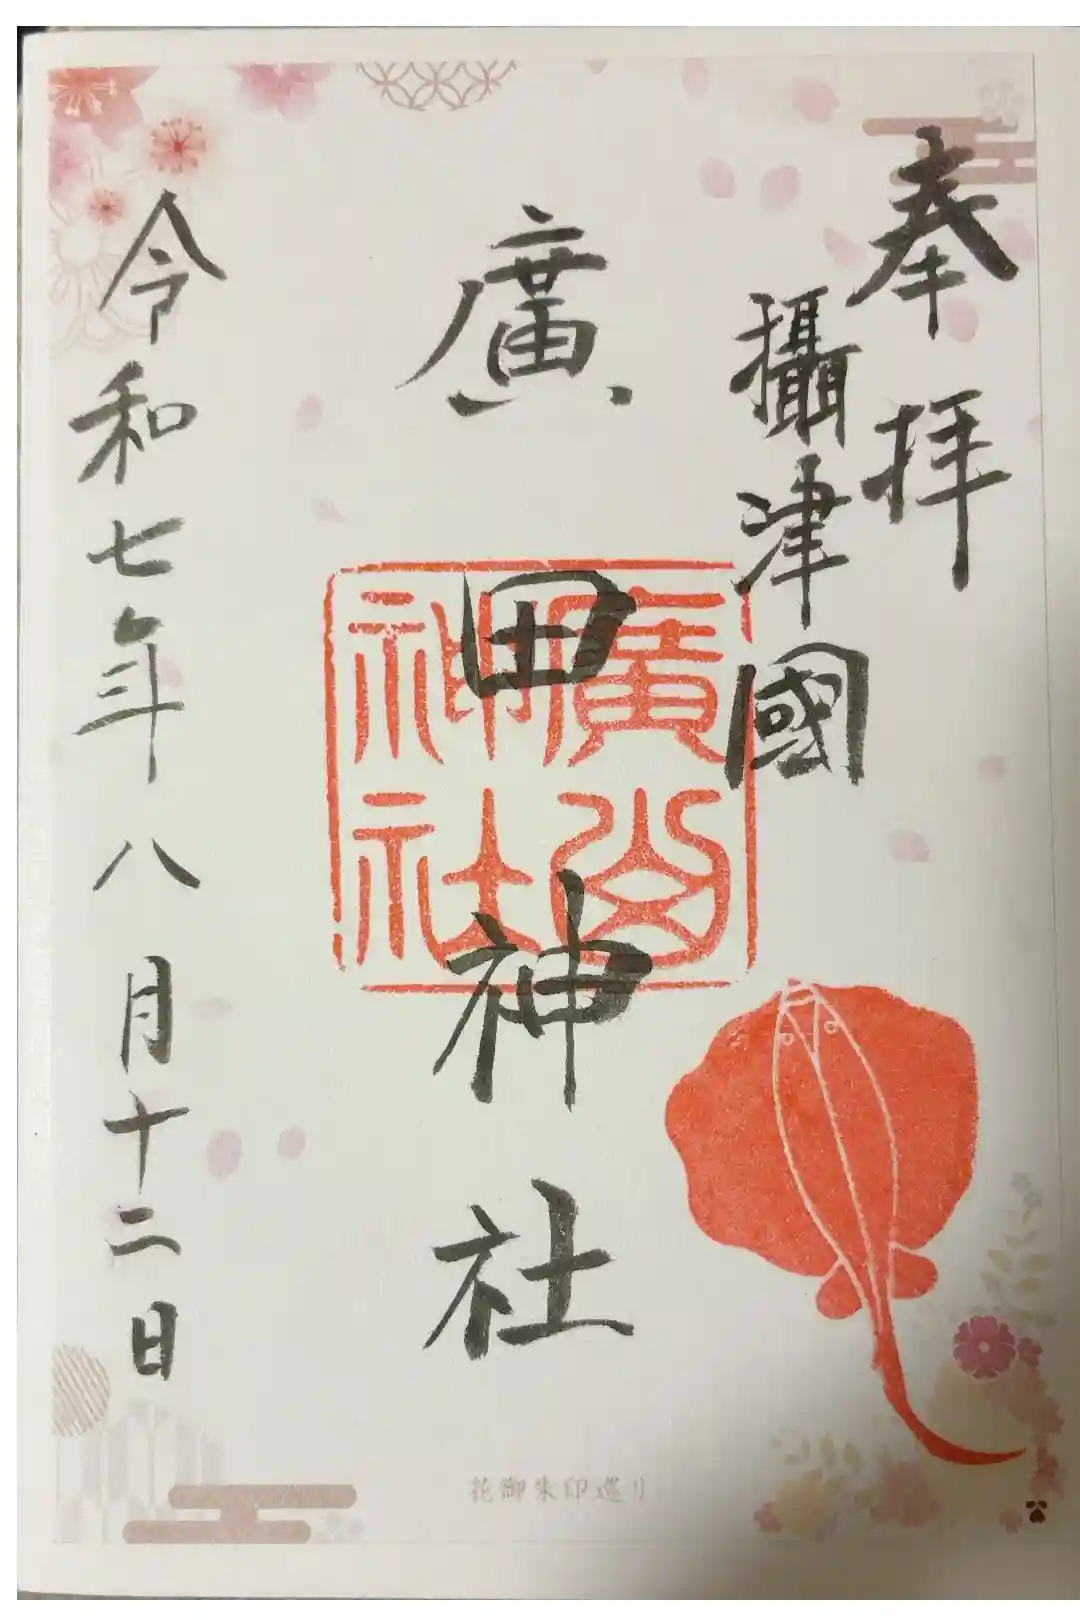 奉拝
攝津國
廣田神社
廣田神社
令和七年八月十二日
花御朱印巡り